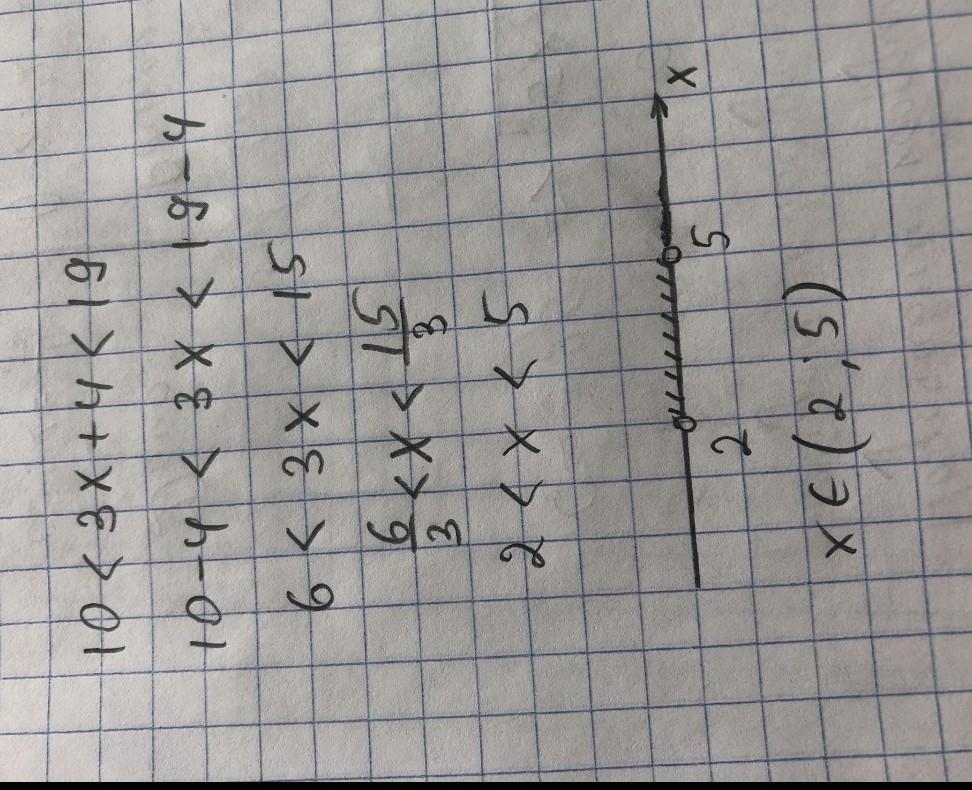 10 < 3x + 4 < 19
10 - 4 < 3x < 19 - 4
6 < 3x < 15
6/3 < x < 15/3
2 < x < 5
x
2 5
x ∈ (2 ; 5)